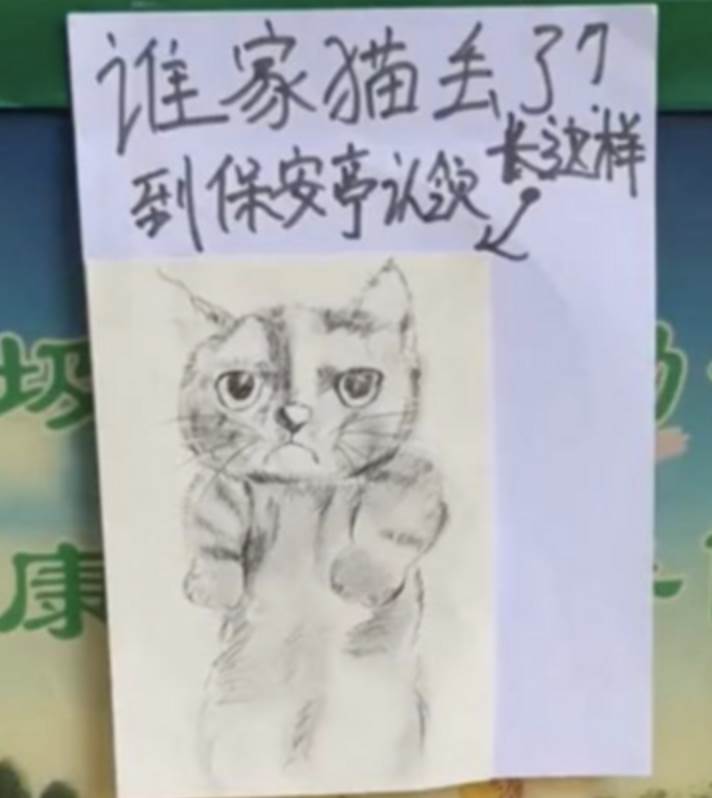 谁家猫丢了?
到保安亭认领
长这样
圾
康